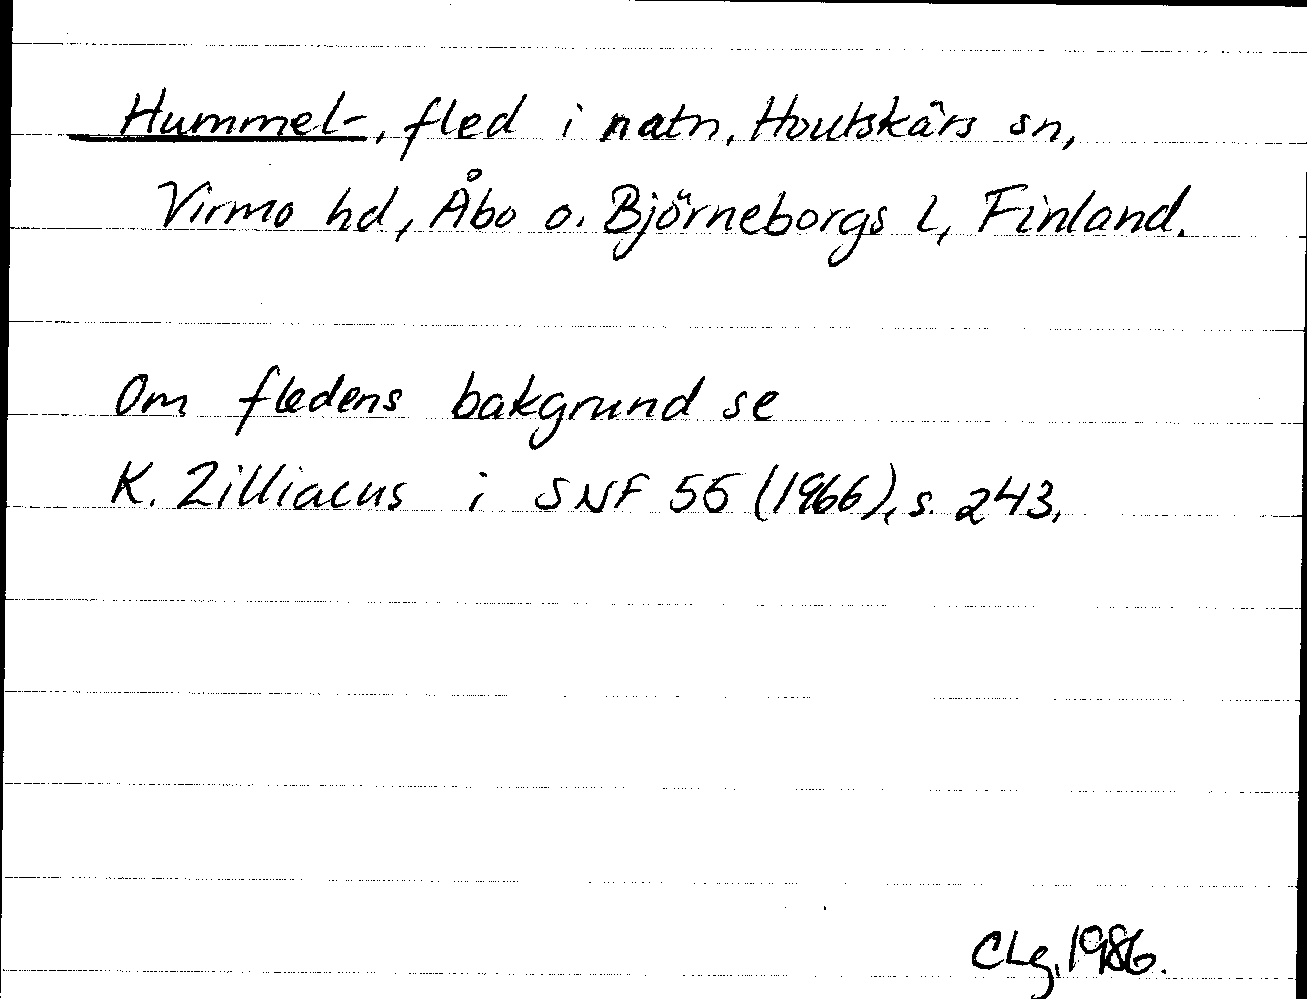 Hummel-, fled i natn, Houtskärs sn,
Virmo hd, Åbo o. Björneborgs l, Finland.
Om fledens bakgrund se
K. Zilliacus i SNF 55 (1966), s. 243.
CLg, 1986.